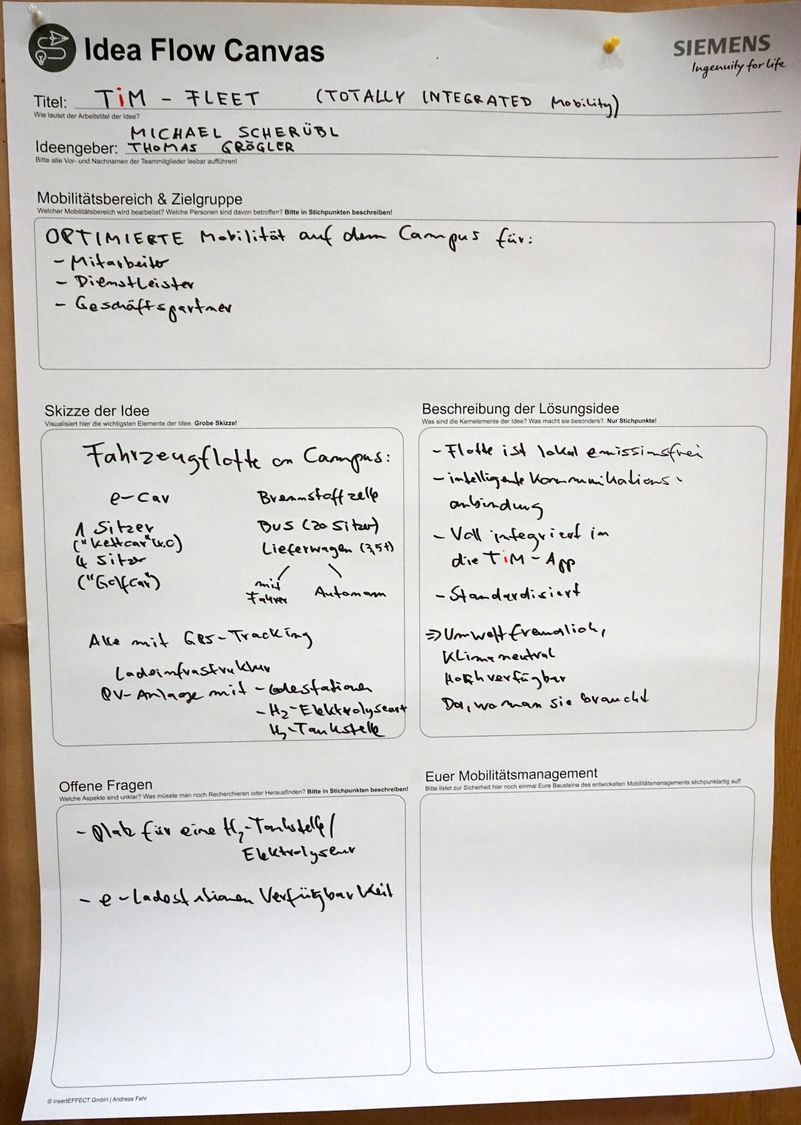 Idea Flow Canvas
SIEMENS
Ingenuity for life
Titel: TiM - FLEET (TOTALLY INTEGRATED Mobility)
Wie lautet der Arbeitstitel der Idee?
MICHAEL SCHERÜBL
Ideengeber: THOMAS GRÖGLER
Bitte alle Vor- und Nachnamen der Teammitglieder lesbar aufführen!
Mobilitätsbereich & Zielgruppe
Welcher Mobilitätsbereich wird bearbeitet? Welche Personen sind davon betroffen? Bitte in Stichpunkten beschreiben!
OPTIMIERTE Mobilität auf dem Campus für:
- Mitarbeiter
- Dienstleister
- Geschäftspartner
Skizze der Idee
Visualisiert hier die wichtigsten Elemente der Idee. Grobe Skizze!
Fahrzeugflotte on Campus:
e-car
1 Sitzer
("Kettcar" u.o)
4 Sitzer
("Golfcar")
Brennstoffzelle
Bus (20 Sitzer)
Lieferwagen (7,5t)
mit Fahrer
Autonom
Alle mit GPS-Tracking
Ladeinfrastruktur
PV-Anlage mit - Ladestationen
- H2-Elektrolyseur
H2-Tankstelle
Beschreibung der Lösungsidee
Was sind die Kernelemente der Idee? Was macht sie besonders? Nur Stichpunkte!
- Flotte ist lokal emissinsfrei
- intelligente Kommunikations-
anbindung
- Voll integriert in
die TiM-App
- Standardisiert
⇒ Umweltfreundlich,
Klimaneutral
Hochverfügbar
Da, wo man sie braucht
Offene Fragen
Welche Aspekte sind unklar? Was müsste man noch Recherchieren oder Herausfinden? Bitte in Stichpunkten beschreiben!
- Platz für eine H2-Tankstelle/
Elektrolyseur
- e-Ladestationen Verfügbarkeit
Euer Mobilitätsmanagement
Bitte listet zur Sicherheit hier noch einmal Eure Bausteine des entwickelten Mobilitätsmanagements stichpunktartig auf!
© InsertEFFECT GmbH | Andreas Fehr